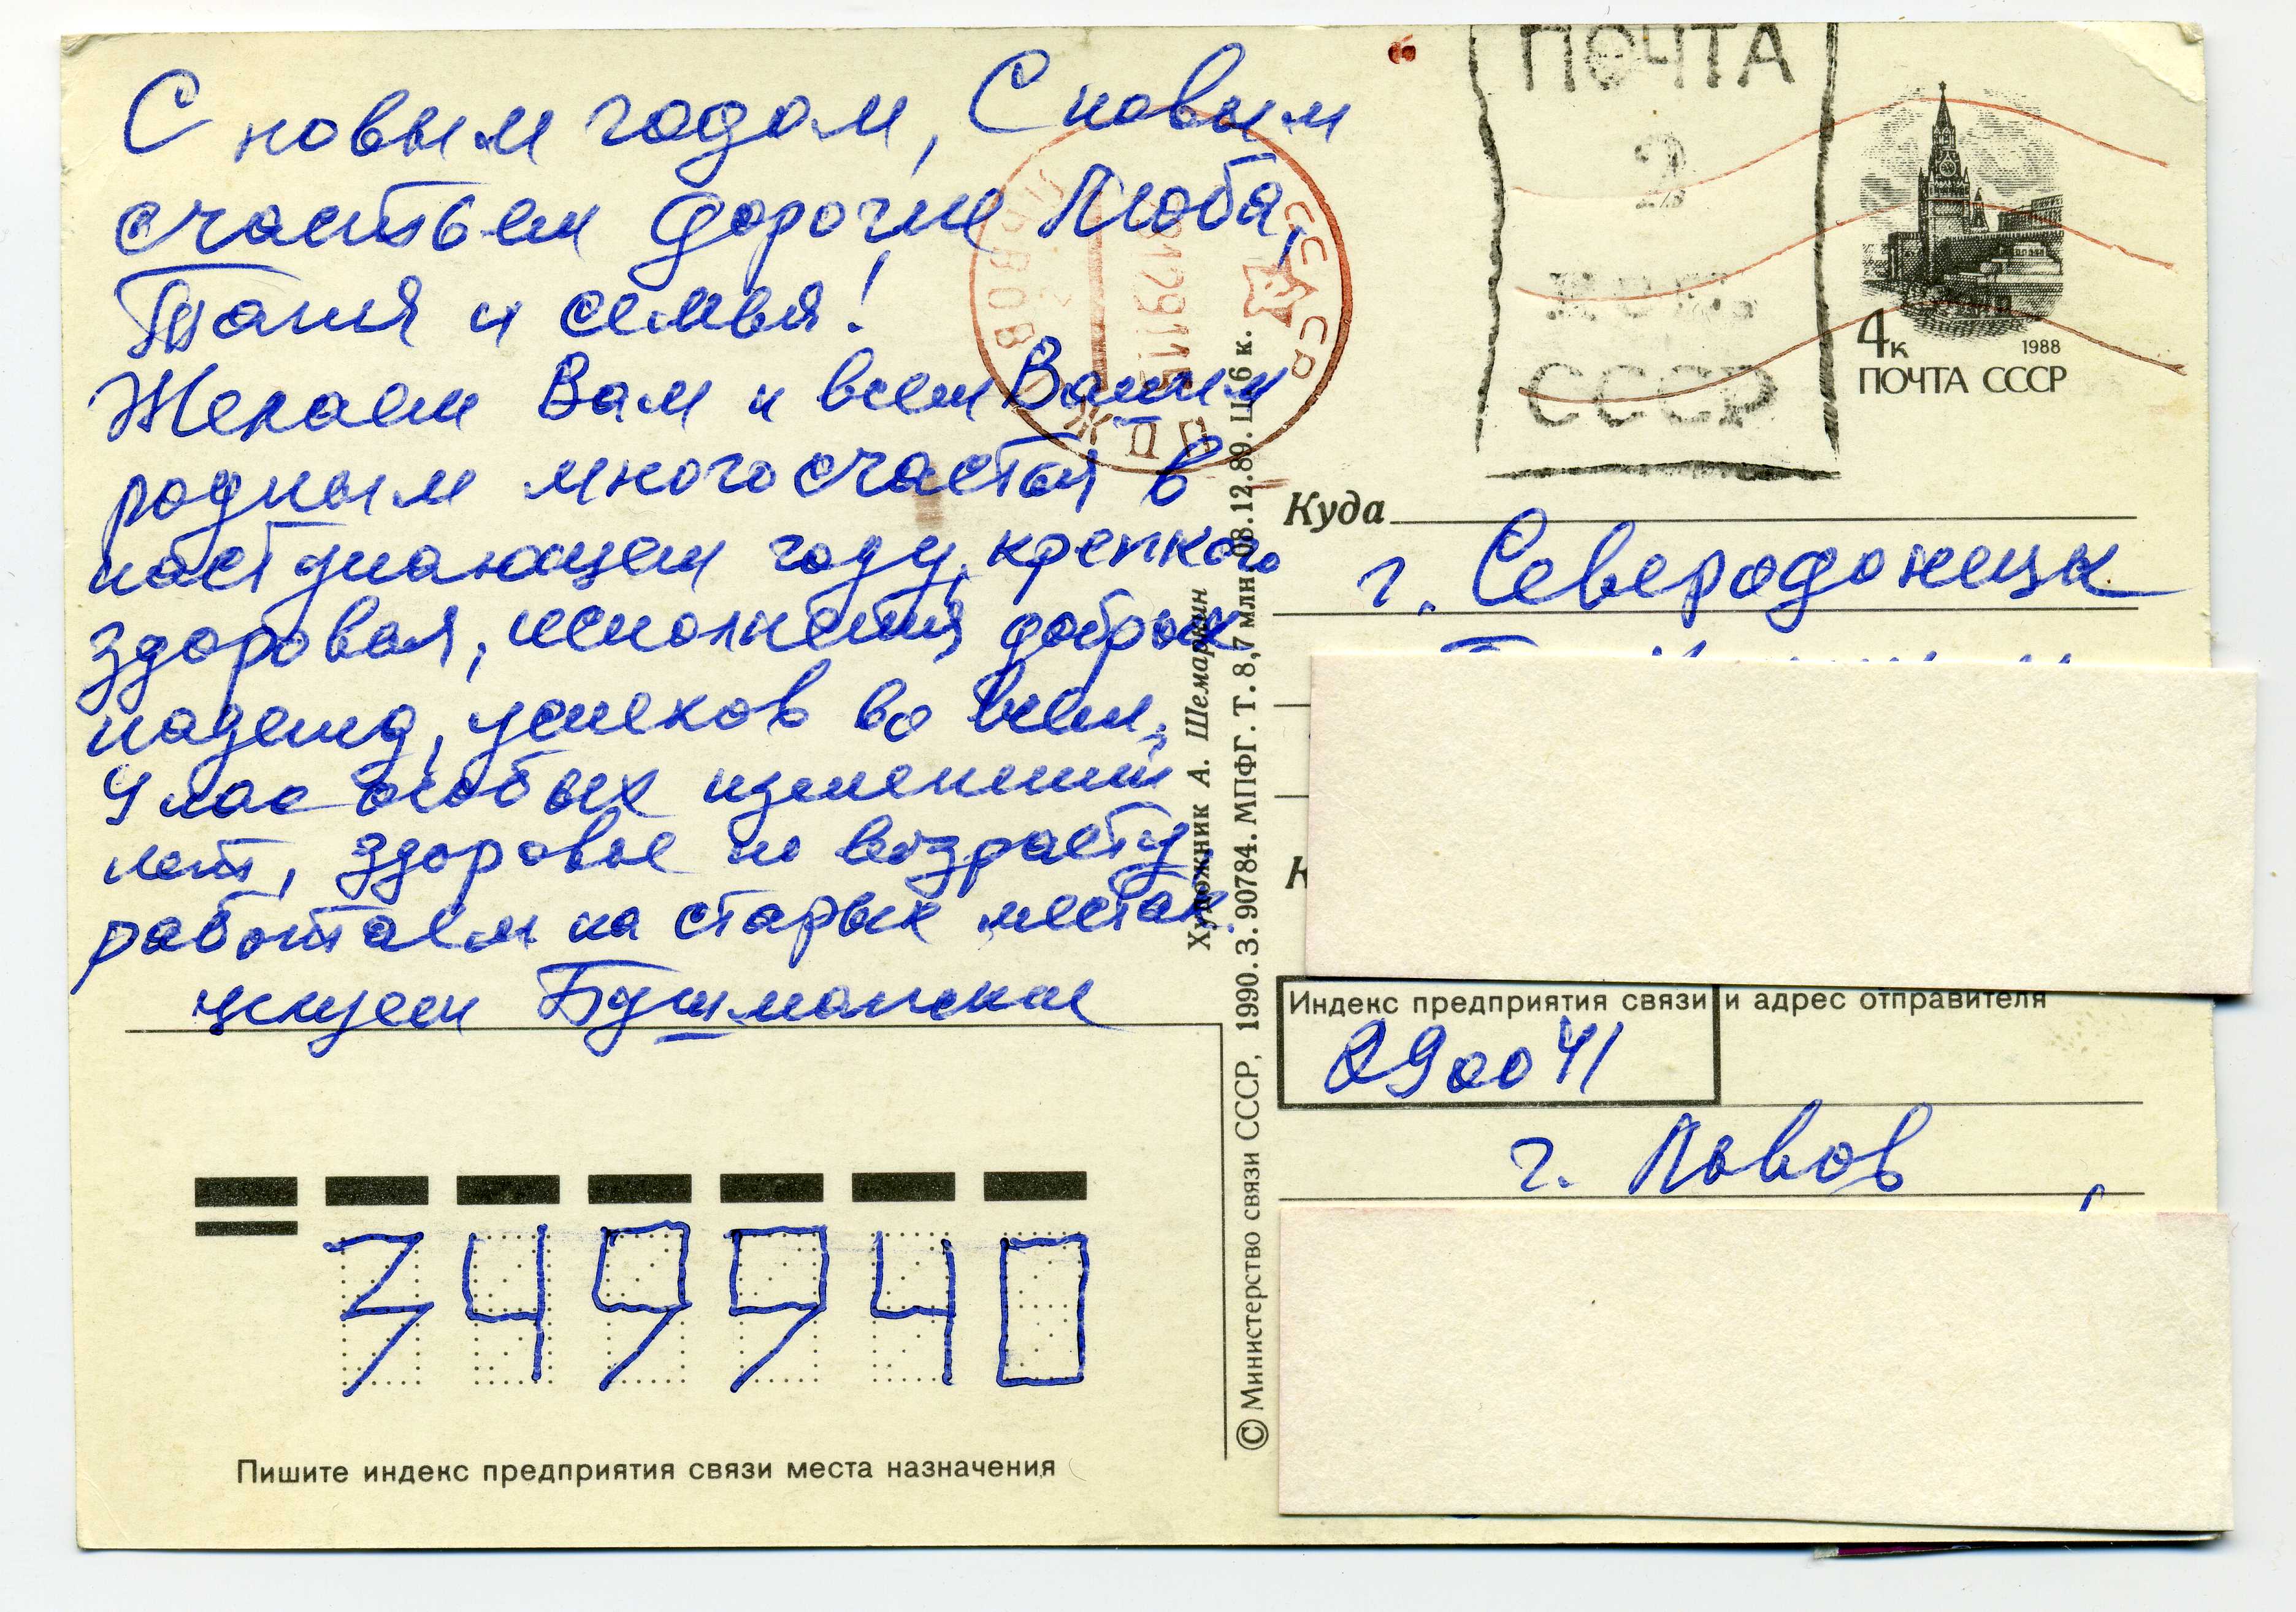 С новым годом, С новым
счастьем дорогие Люба,
Таня и семья!
Желаем Вам и всем Вашим
родным много счастья в
наступающем году, крепкого
здоровья, исполнения добрых
надежд, успехов во всем,
У нас особых изменений
нет, здоровье по возрасту,
работаем на старых местах.
целуем
Пишите индекс предприятия связи места назначения
349940
Художник А. Шемаркин
© Министерство связи СССР, 1990. З. 90784. МПФГ. Т. 8,7 млн 08.12.89. Ц. 6 к.
ПОЧТА
2
СССР
СССР
ЛЬВОВ
4к
1988
ПОЧТА СССР
Куда
г. Северодонецк
Индекс предприятия связи и адрес отправителя
290041
г. Львов